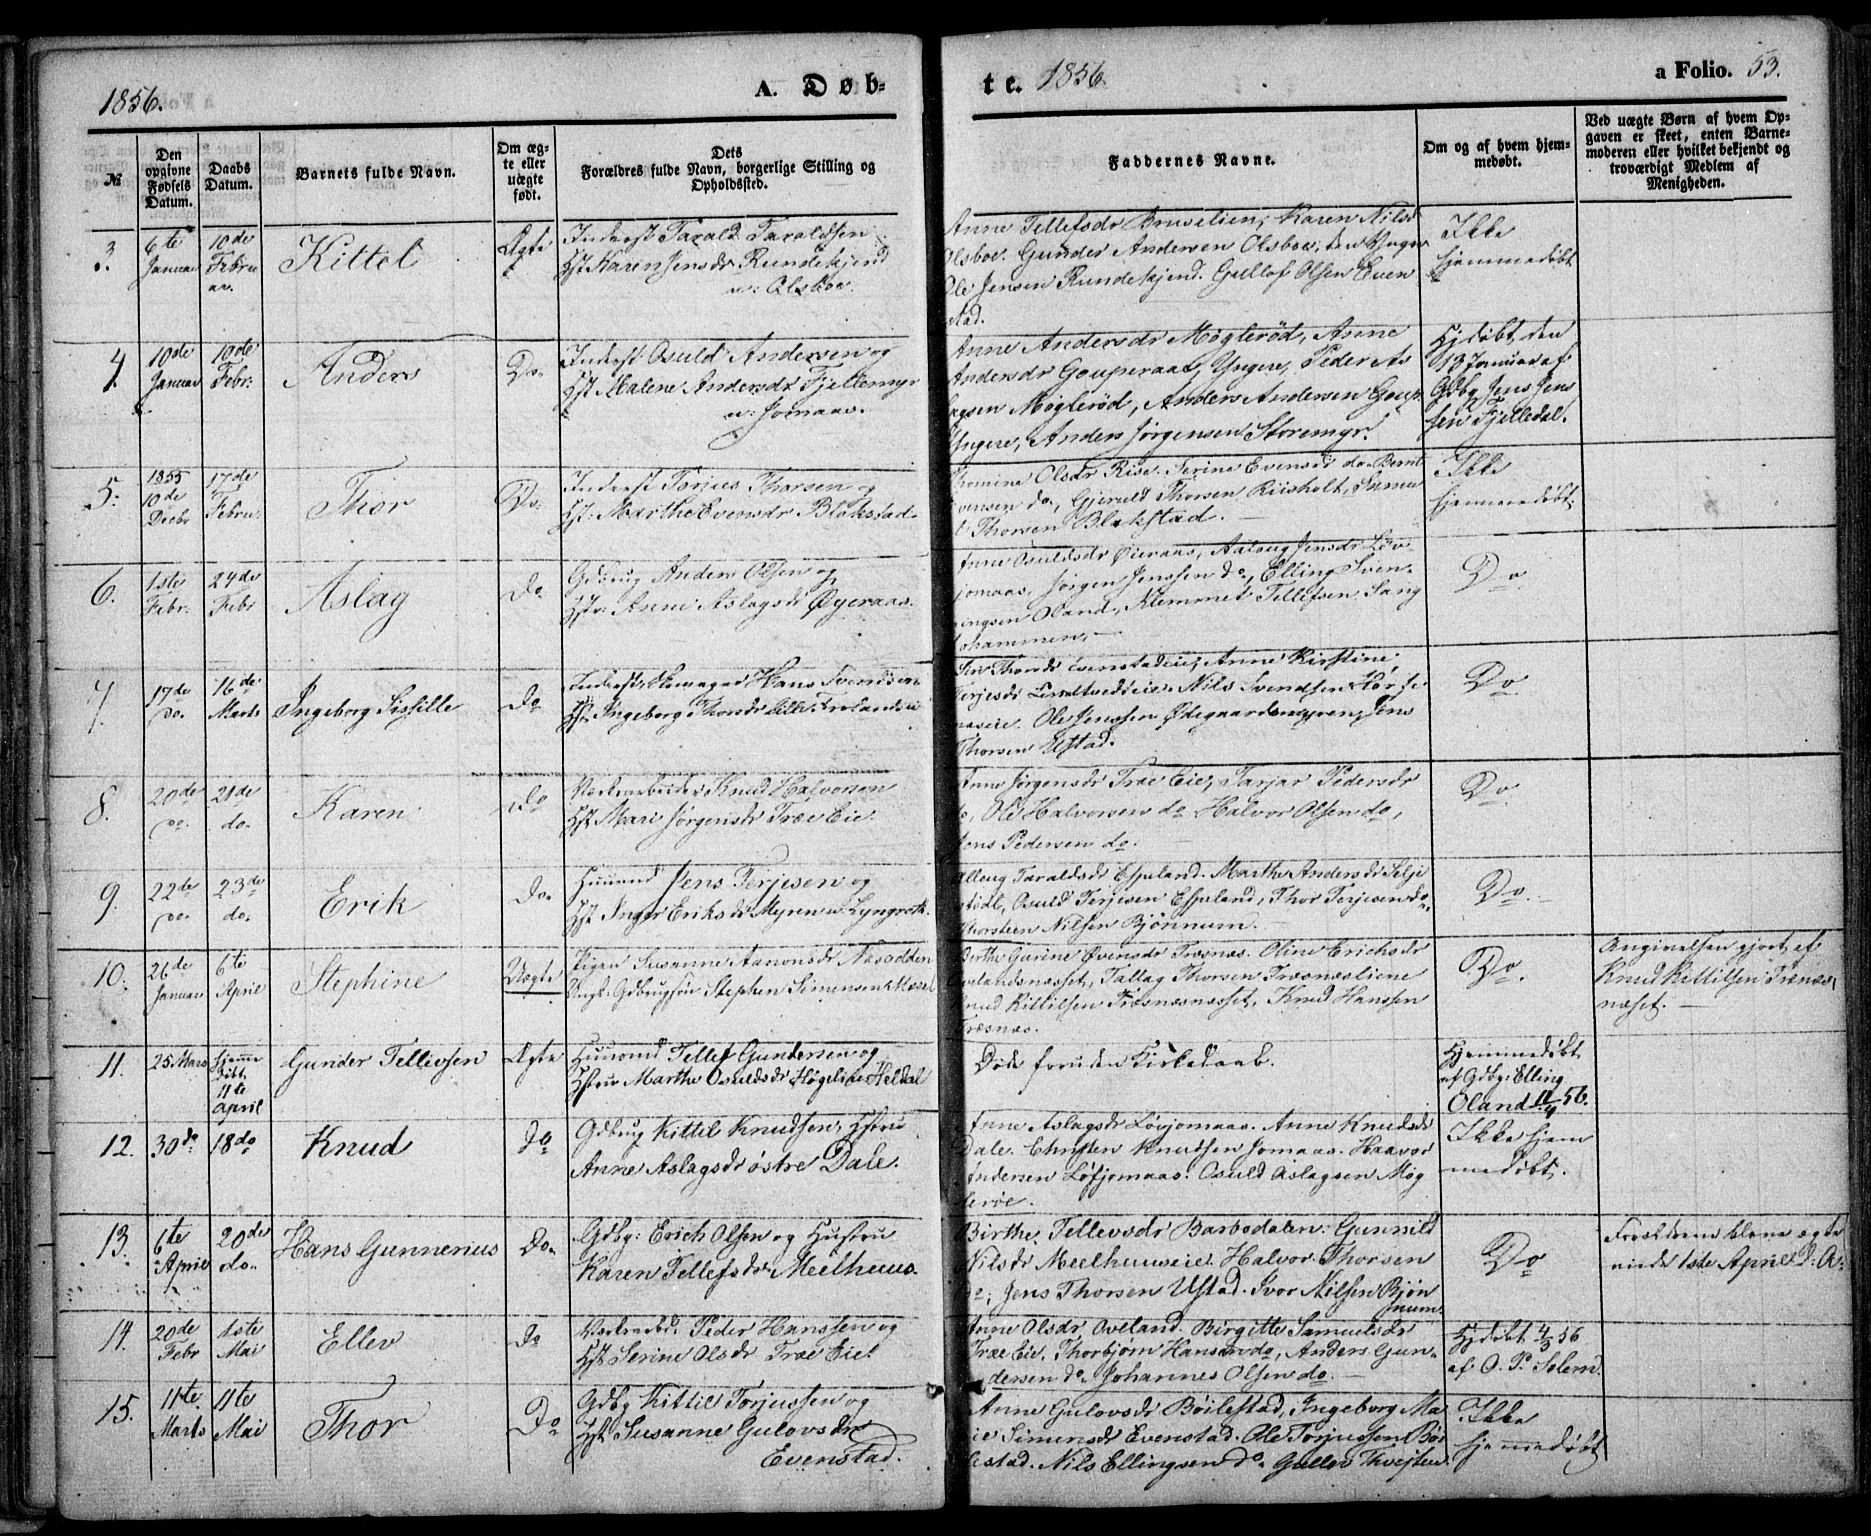 1856.
A. Døb-
te. 1856.
a Folio. 53.
№
Den
opgivne
Fødsels
Datum.
Daabs
Datum.
Barnets fulde Navn.
Om æg-
te eller
uægte
født.
Dets
Forældres fulde Navn, borgerlige Stilling og
Opholdssted.
Faddernes Navne.
Om og af hvem hjem-
medøbt.
Ved uægte Børn af hvem Op-
gaven er skeet, enten Barne-
moderen eller hvilket bekjendt og
troværdigt Medlem af
Menigheden.
3.
6te
Januar
10de
Febru
ar.
Kittel
Ægte
Inderst Tarald Taraldsen
Hst Karen Jensdr Rundekjend
u: Olsboe.
Anne Tellefsdr Bruselien, Karen Nilsd
Olsboe. Gunder Andersen Olsboe, den Yngre
Ole Jensen Rundekjend. Gullof Olsen Even
stad.
Ikke
hjemmedøbt
4.
10de
Januar
10de
Febr:
Anders
Do.
Inderst Osuld Andersen og
Hst Malene Andersdr Fjellemyr
u: Jomaas.
Anne Andersdr Møglerød, Anne
Andersdr Gouperaas, Yngere, Peder As
lagsen Møglerød, Anders Andersen Goup.
Yngere, Anders Jørgensen Storemyr.
Hjdøbt den
13 Januar af
Gdbg Jens Jens
sen Fjelledal.
5.
1855
10de
Decbr
17de
Febru.
Thor
Do.
Inderst Torjus Thorsen og
Hst: Marthe Evensdr Blakstad.
Thomine Olsdr Rise. Serine Evensdr do. Bernt
Evensen do, Gjeruld Thorsen Riisholt,
Thorsen Blakstad.
Ikke
hjemmedøbt.
6.
1ste
Febr.
24de
Febr
Aslag
Do
Gdbrug Anders Olsen og
Hst: Anne Aslagsdr Øyeraas.
Anne Osuldsdr Øieraas, Aaloug Jensdr Løv
jomaas, Jørgen Jenssen do, Elling Sven-
ningsen Oland, Klemmet Tellefsen Sang
ohammen.
Do.
7
17de
do.
16de
Marts
Ingeborg Sissille
Do
Inderst, Skomager Hans Svendsen
Hst. Ingeborg Thorsdr Lille Frolandseie
Siri Thorsdr Evenstadeie, Anne Kirstine
Terjesdr Lindtvedteie. Nils Svendsen
aaseie. Ole Jenssen Ødegaardsmyren, Jens
Thorsen Ustad.
Do
8.
20de
do.
21de
do.
Karen
Do
Værksarbeider Knud Halvorsen
Hst Mari Jørgensdr Træe Eie.
Anne Jørgensdr Træe Eie, Tarjer Pedersdr
do, Ole Halvorsen do Halvor Olsen do,
Jens Pedersen do.
Do.
9.
22de
do.
23de
do.
Erik
Do.
Huusmd Jens Terjesen og
Hst Inger Eriksdr Myren u. Lyngroth.
Alloug Taraldsdr Espeland. Marthe Andersdr Selje
stødl, Osuld Terjesen Espeland, Thor Terjesen do.
Thorsteen Nilsen Bjønnum.
Do.
10.
26de
Januar
6te
April
Stephine
Uægte
Pigen Susanne Aanonsdr Næsodden
Ungk: Gdbrugsøn Stephen Simensen Mæsel
Berthe Gurine Øvensdr Træsnæs. Oline Erichsdr
Ovelandsnæsset, Tallag Thorsen Træsnæsliene
Knud Kittilsen Træsnæsnæsset, Knud Hanssen
Træsnæs.
Do.
Angivelsen gjort af
Knud Kittilsen Trænæs
næset.
11.
25 Mars
hjemme
døbt
11te
April
Gunder Tellevsen
Ægte
Huusmd Tellef Gundersen og
Hstru Marthe Osuldsdr Høgelien Heldal
Døde foruden Kirkedaab.
Hjemmedøbt
af Gdbg: Elling
Oland 11/4 56.
12.
30 do
18 do
Knud
Do
Gdbrug Kittil Knudsen, Hstru
Anne Aslagsdr østre Dale.
Anne Aslagsdr Løvjomaas. Anne Knudsdr
Dale. Christen Knudsen Jomaas. Haavor
Andersen Løfjomaas. Osuld Aslagsen Møg
lerøe.
Ikke hjem
medøbt.
13.
6te
April
20de
do.
Hans Gunnerius
Do.
Gdbg: Erich Olsen og Hustru
Karen Tellefsdr Meelhuus.
Birthe Tellevsdr Barbodalen. Gunnild
Nilsdr Meelhuuseie. Halvor Thorsen
do, Jens Thorsen Ustad. Ivor Nilsen Bjøn
num.
Do
Forældrene bleve ægte
viede 1ste April d: A.
14.
20de
Febr
1ste
Mai
Ellev
Do
Værksarbd: Peder Hanssen og
Hst Serine Olsdr Træe Eie.
Anne Olsdr Oveland. Birgitte Samuelsdr
Træe Eie. Thorbjørn Hansen do, Anders Gun-
dersen do. Johannes Olsen do.
Hjdøbt 4/3 56
af O. P. Solem.
15.
11te
Marts
11te
Mai
Thor
Do
Gdbg Kittil Torjussen og
Hst Susanne Gulovsdr
Evenstad.
Anne Gulovsdr Bøilestad, Ingeborg Ma
rie Simensdr Evenstad. Ole Torjussen Bøi
lestad. Nils Ellingsen do. Gullov Thveiten.
Ikke
hjemmedøbt